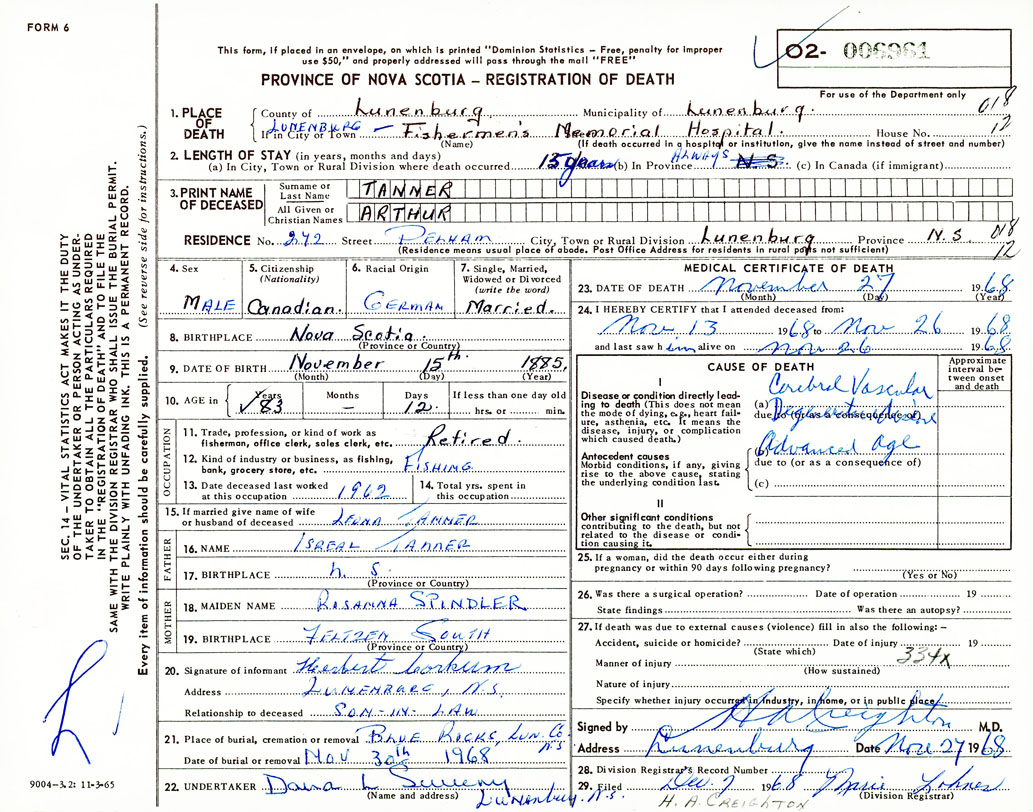 FORM 6
This form, if placed in an envelope, on which is printed "Dominion Statistics – Free, penalty for improper
use $50," and properly addressed will pass through the mail "FREE"
PROVINCE OF NOVA SCOTIA – REGISTRATION OF DEATH
02- 006961
For use of the Department only
018
12
1. PLACE OF DEATH { County of Lunenburg Municipality of Lunenburg.
LUNENBURG – If in City or Town Fishermen's Memorial Hospital. House No.
(Name) (If death occurred in a hospital or institution, give the name instead of street and number)
2. LENGTH OF STAY (in years, months and days)
(a) In City, Town or Rural Division where death occurred 15 years (b) In Province ALWAYS N.S. (c) In Canada (if immigrant)
3. PRINT NAME OF DECEASED
Surname or Last Name TANNER
All Given or Christian Names ARTHUR
RESIDENCE No. 242 Street PELHAM City, Town or Rural Division Lunenburg Province N.S. 018
12
(Residence means usual place of abode. Post Office Address for residents in rural parts not sufficient)
4. Sex MALE
5. Citizenship (Nationality) Canadian.
6. Racial Origin GERMAN
7. Single, Married, Widowed or Divorced (write the word) Married.
8. BIRTHPLACE Nova Scotia.
(Province or Country)
9. DATE OF BIRTH November 15th. 1885.
(Month) (Day) (Year)
10. AGE in { Years 83 Months – Days 12. If less than one day old hrs. or min.
OCCUPATION
11. Trade, profession, or kind of work as fisherman, office clerk, sales clerk, etc. Retired.
12. Kind of industry or business, as fishing, bank, grocery store, etc. FISHING
13. Date deceased last worked at this occupation 1962
14. Total yrs. spent in this occupation
15. If married give name of wife or husband of deceased LEONA TANNER
FATHER
16. NAME ISREAL TANNER
17. BIRTHPLACE N. S.
(Province or Country)
MOTHER
18. MAIDEN NAME ROSANNA SPINDLER
19. BIRTHPLACE FELTZEN SOUTH
(Province or Country)
20. Signature of informant Herbert Corkum
Address LUNENBURG, N.S.
Relationship to deceased SON-IN-LAW
21. Place of burial, cremation or removal BLUE ROCKS, LUN. CO. NS
Date of burial or removal NOV 30th 1968
22. UNDERTAKER Dana L Sweeny
(Name and address) Lunenburg, N.S.
MEDICAL CERTIFICATE OF DEATH
23. DATE OF DEATH November 27 1968
(Month) (Day) (Year)
24. I HEREBY CERTIFY that I attended deceased from:
Nov 13 1968 to Nov 26 1968
and last saw him alive on Nov 26 1968
CAUSE OF DEATH
Approximate interval between onset and death
I
Disease or condition directly leading to death (This does not mean the mode of dying, e.g., heart failure, asthenia, etc. It means the disease, injury, or complication which caused death.)
(a) Cerebral Vascular
due to (or as a consequence of)
Antecedent causes
Morbid conditions, if any, giving rise to the above cause, stating the underlying condition last.
(b) Advanced Age
due to (or as a consequence of)
(c)
II
Other significant conditions contributing to the death, but not related to the disease or condition causing it.
25. If a woman, did the death occur either during pregnancy or within 90 days following pregnancy?
(Yes or No)
26. Was there a surgical operation? Date of operation 19
State findings Was there an autopsy?
27. If death was due to external causes (violence) fill in also the following: –
Accident, suicide or homicide? Date of injury 19
(State which) 334x
Manner of injury
(How sustained)
Nature of injury
Specify whether injury occurred in industry, in home, or in public place
Signed by H A Creighton M.D.
Address Lunenburg Date Nov 27 1968
28. Division Registrar's Record Number
29. Filed Dec 7 1968 Marie Lohnes
(Division Registrar)
H. A. CREIGHTON
SEC. 14 – VITAL STATISTICS ACT MAKES IT THE DUTY
OF THE UNDERTAKER OR PERSON ACTING AS UNDER-
TAKER TO OBTAIN ALL THE PARTICULARS REQUIRED
IN THE "REGISTRATION OF DEATH" AND TO FILE THE
SAME WITH THE DIVISION REGISTRAR WHO SHALL ISSUE THE BURIAL PERMIT.
WRITE PLAINLY WITH UNFADING INK. THIS IS A PERMANENT RECORD.
Every item of information should be carefully supplied. (See reverse side for instructions.)
9004–3.2: 11-3-65